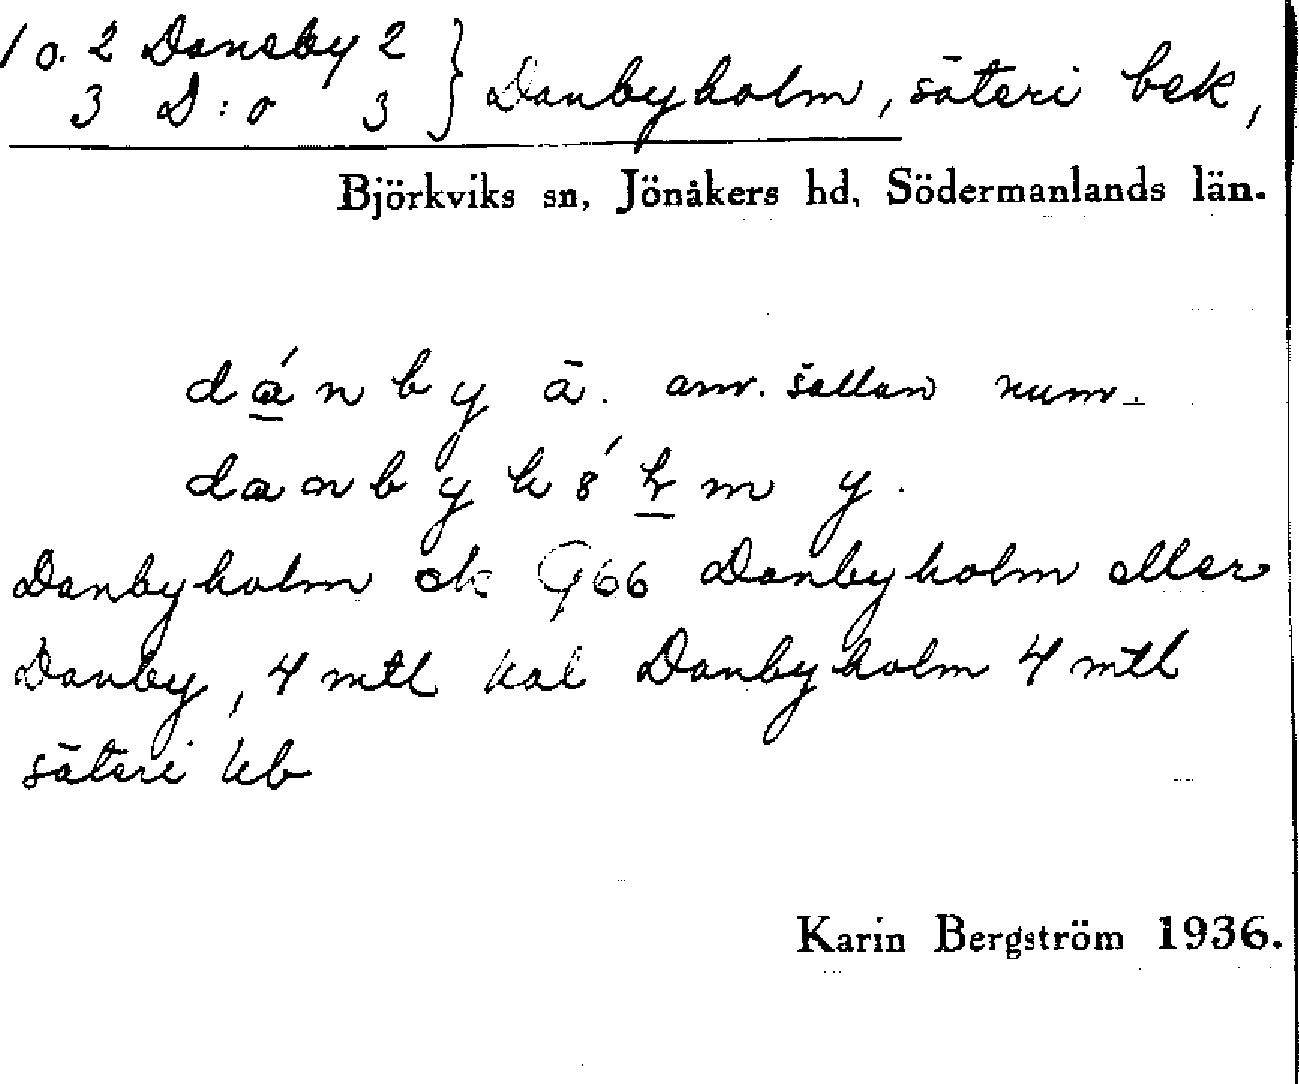 1 o. 2 Dansby 2 } Danbyholm, säteri bek,
3 D:o 3
Björkviks sn, Jönåkers hd, Södermanlands län.
dánby ā. anv. sällan numr.
danby hm y.
Danbyholm ek G66 Danbyholm eller
Danby, 4 mtl kal Danbyholm 4 mtl
säteri kb
Karin Bergström 1936.